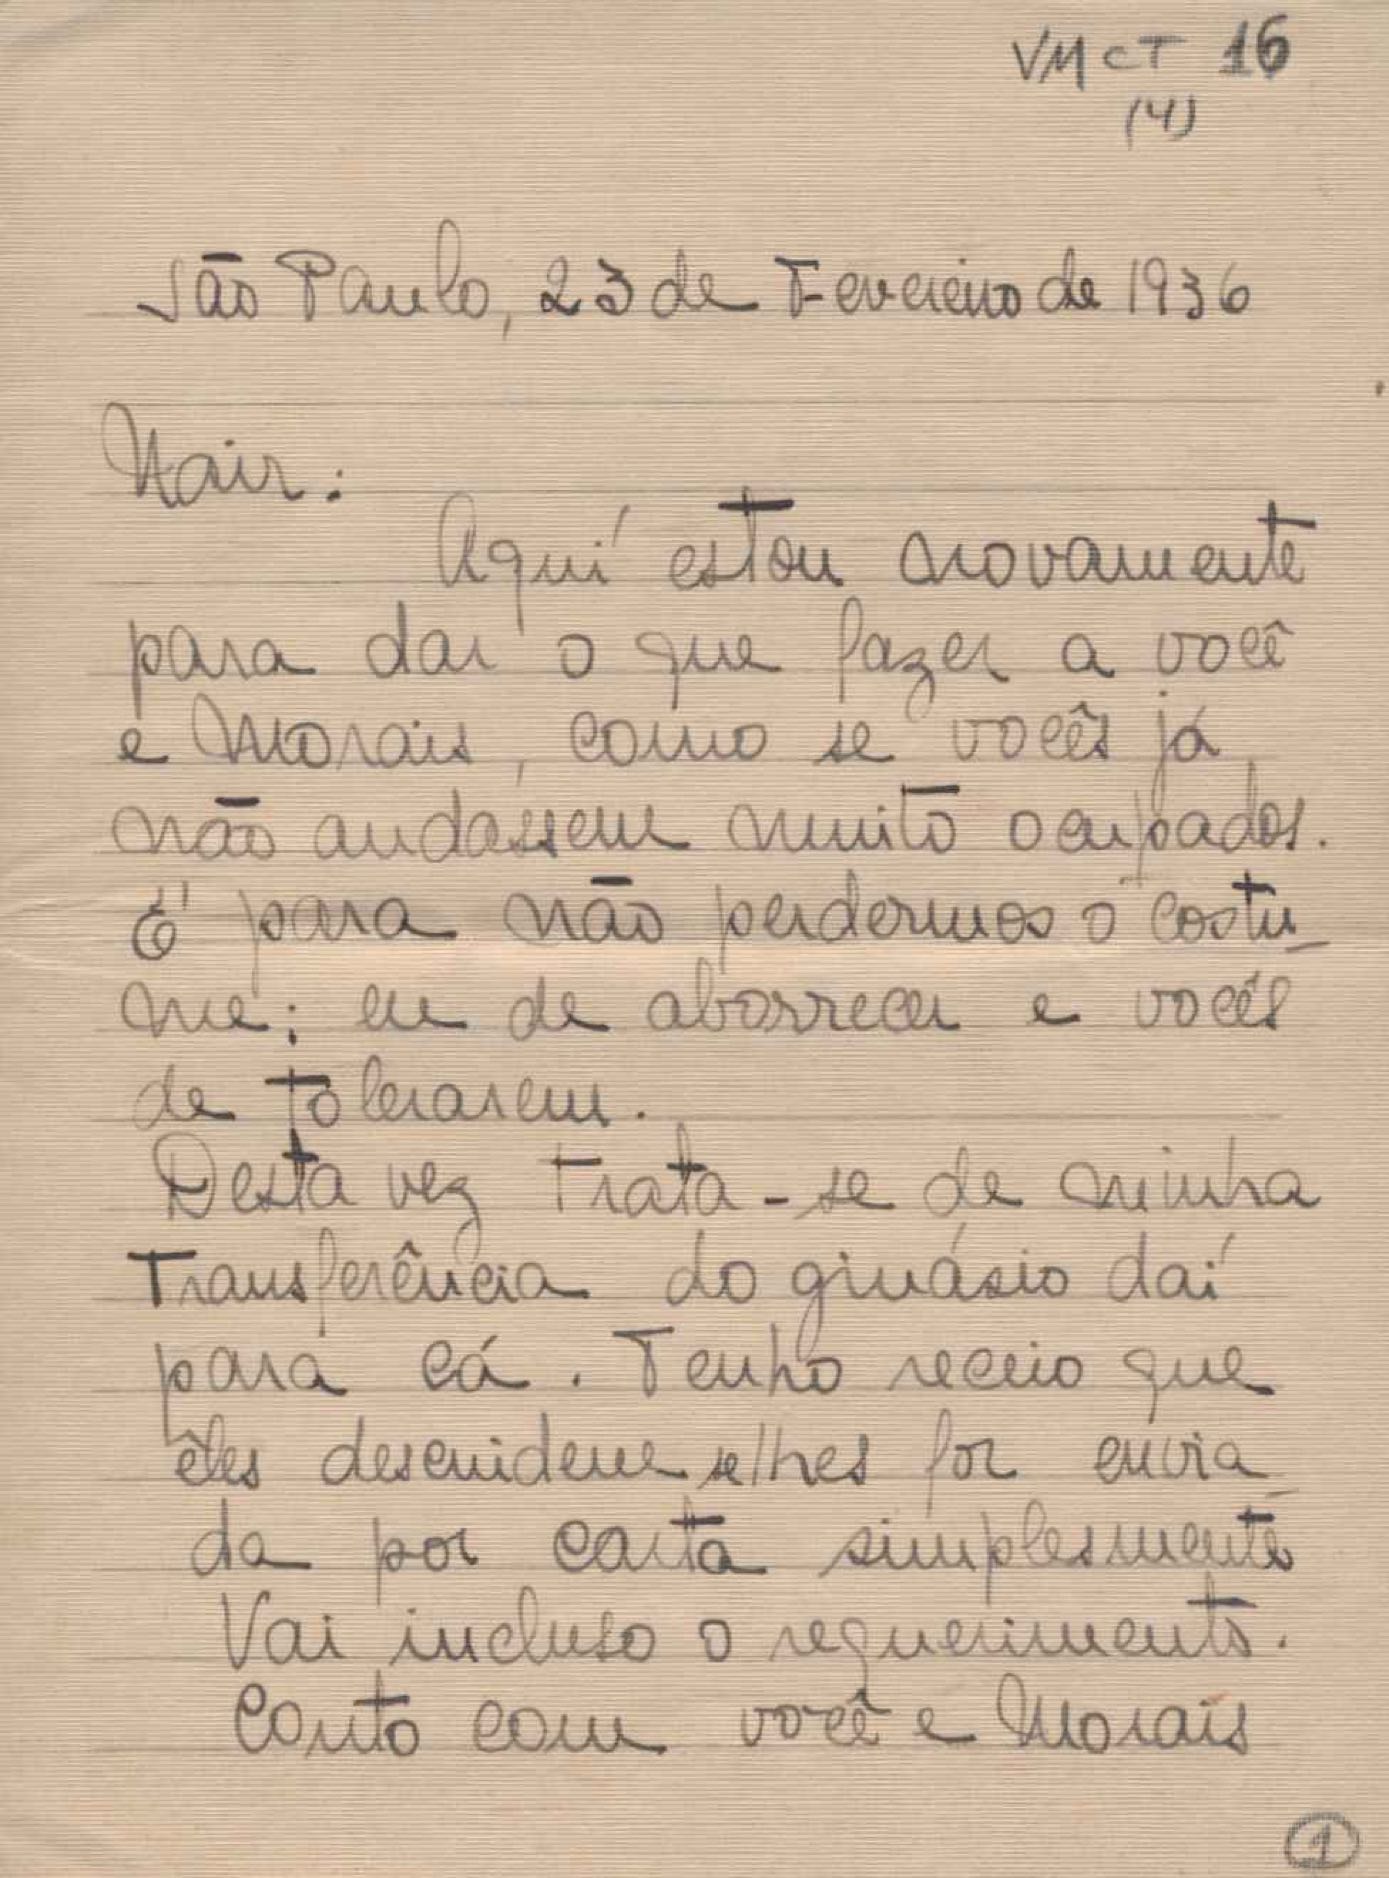 VM CT 16
(4)
São Paulo, 23 de Fevereiro de 1936
Nair:
Aquí estou novamente
para dar o que fazer a você
e Morais, como se vocês já
não andassem muito ocupados.
É para não perdermos o costu-
me: eu de aborrecer e vocês
de tolerarem.
Desta vez trata-se de minha
transferência do ginásio daí
para cá. Tenho receio que
êles descuidem se lhes for envia
da por carta simplesmente
Vai incluso o requerimento.
Conto com você e Morais
1